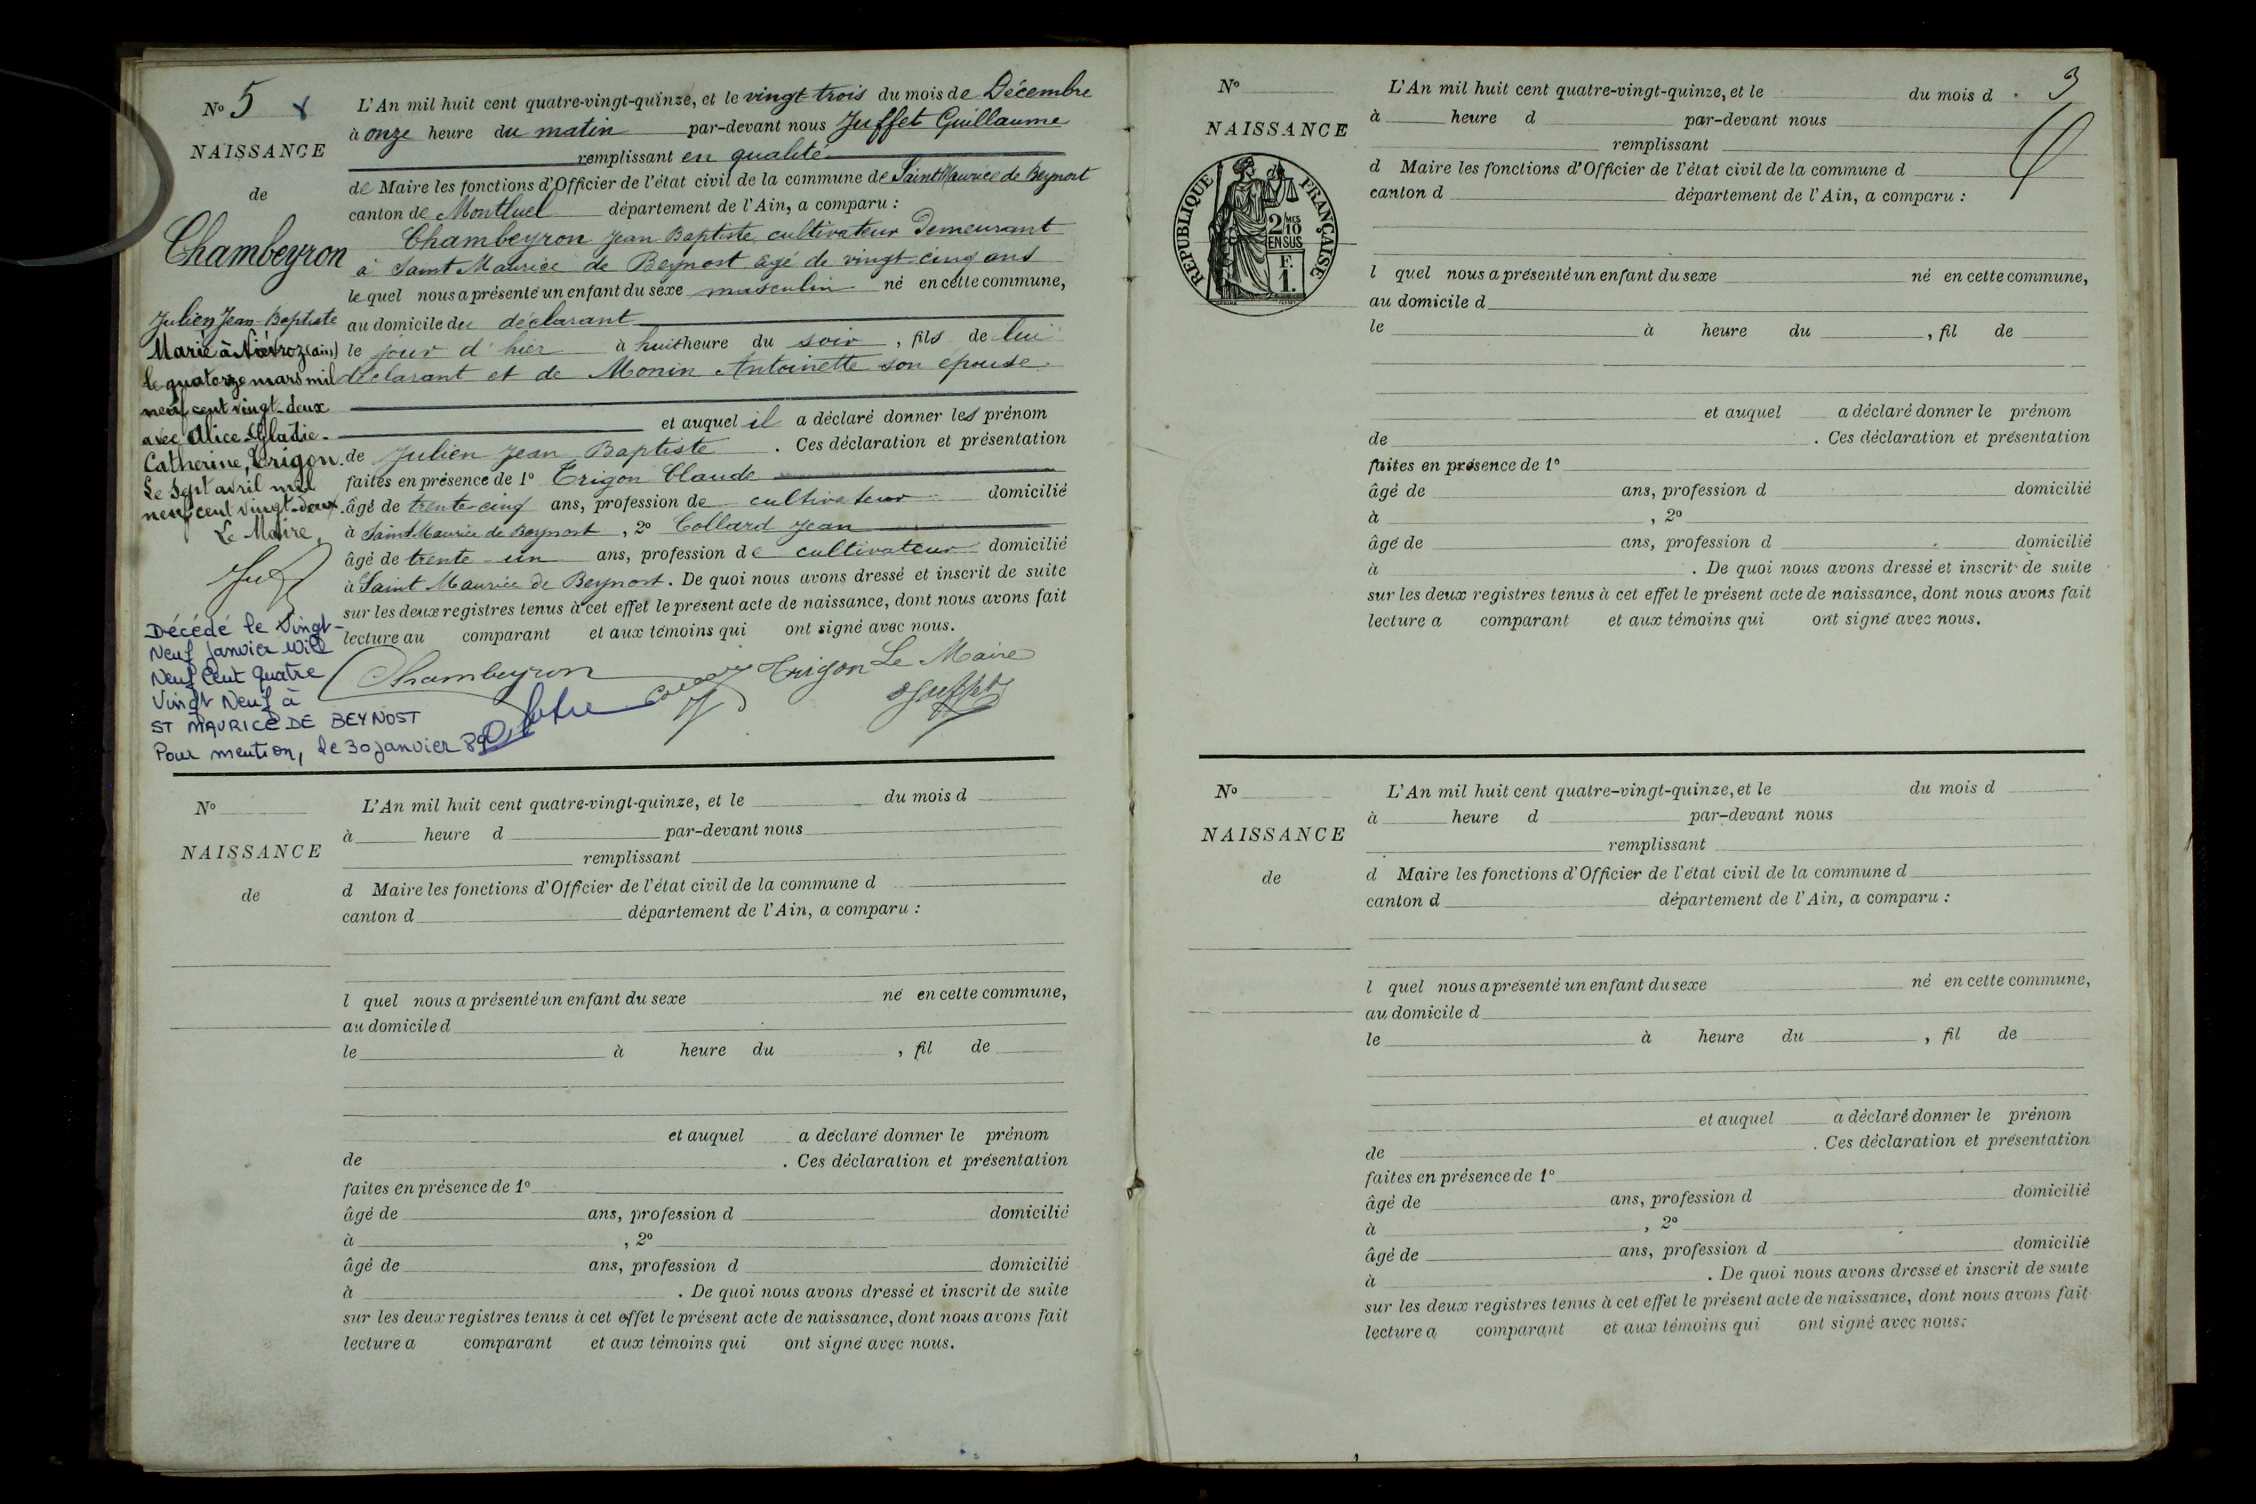 No 5
NAISSANCE
de
Chambeyron
Julien Jean-Baptiste
Marié à Niévroz (ain)
le quatorze mars mil
neuf cent vingt-deux
avec Alice
Catherine, Trigon.
Le Sept avril mil
neuf cent vingt-deux.
Le Maire,
Décédé le Vingt-
Neuf Janvier Mil
Neuf Cent Quatre
Vingt Neuf à
ST MAURICE DE BEYNOST
Pour mention, le 30 janvier 89
L'An mil huit cent quatre-vingt-quinze, et le vingt-trois du mois de Décembre
à onze heure du matin par-devant nous Juffet Guillaume
remplissant en qualité
de Maire les fonctions d'Officier de l'état civil de la commune de Saint Maurice de Beynost
canton de Montluel département de l'Ain, a comparu :
Chambeyron Jean Baptiste, cultivateur demeurant
à Saint Maurice de Beynost âgé de vingt-cinq ans
lequel nous a présenté un enfant du sexe masculin né en cette commune,
au domicile du déclarant
le jour d'hier à huit heure du soir, fils de lui
déclarant et de Monin Antoinette son épouse
et auquel il a déclaré donner les prénom
de Julien Jean Baptiste. Ces déclaration et présentation
faites en présence de 1º Trigon Claude
âgé de trente-cinq ans, profession de cultivateur domicilié
à Saint Maurice de Beynost, 2º Collard Jean
âgé de trente-un ans, profession de cultivateur domicilié
à Saint Maurice de Beynost. De quoi nous avons dressé et inscrit de suite
sur les deux registres tenus à cet effet le présent acte de naissance, dont nous avons fait
lecture au comparant et aux témoins qui ont signé avec nous.
Chambeyron Trigon Le Maire
Juffet
No
NAISSANCE
de
L'An mil huit cent quatre-vingt-quinze, et le du mois d
à heure d par-devant nous
remplissant
d Maire les fonctions d'Officier de l'état civil de la commune d
canton d département de l'Ain, a comparu :
l quel nous a présenté un enfant du sexe né en cette commune,
au domicile d
le à heure du , fil de
et auquel a déclaré donner le prénom
de . Ces déclaration et présentation
faites en présence de 1º
âgé de ans, profession d domicilié
à , 2º
âgé de ans, profession d domicilié
à . De quoi nous avons dressé et inscrit de suite
sur les deux registres tenus à cet effet le présent acte de naissance, dont nous avons fait
lecture a comparant et aux témoins qui ont signé avec nous.
3
No
NAISSANCE
REPUBLIQUE FRANÇAISE
2/10 MES
EN SUS
F.
1.
L'An mil huit cent quatre-vingt-quinze, et le du mois d
à heure d par-devant nous
remplissant
d Maire les fonctions d'Officier de l'état civil de la commune d
canton d département de l'Ain, a comparu :
l quel nous a présenté un enfant du sexe né en cette commune,
au domicile d
le à heure du , fil de
et auquel a déclaré donner le prénom
de . Ces déclaration et présentation
faites en présence de 1º
âgé de ans, profession d domicilié
à , 2º
âgé de ans, profession d domicilié
à . De quoi nous avons dressé et inscrit de suite
sur les deux registres tenus à cet effet le présent acte de naissance, dont nous avons fait
lecture a comparant et aux témoins qui ont signé avec nous.
No
NAISSANCE
de
L'An mil huit cent quatre-vingt-quinze, et le du mois d
à heure d par-devant nous
remplissant
d Maire les fonctions d'Officier de l'état civil de la commune d
canton d département de l'Ain, a comparu :
l quel nous a présenté un enfant du sexe né en cette commune,
au domicile d
le à heure du , fil de
et auquel a déclaré donner le prénom
de . Ces déclaration et présentation
faites en présence de 1º
âgé de ans, profession d domicilié
à , 2º
âgé de ans, profession d domicilié
à . De quoi nous avons dressé et inscrit de suite
sur les deux registres tenus à cet effet le présent acte de naissance, dont nous avons fait
lecture a comparant et aux témoins qui ont signé avec nous.